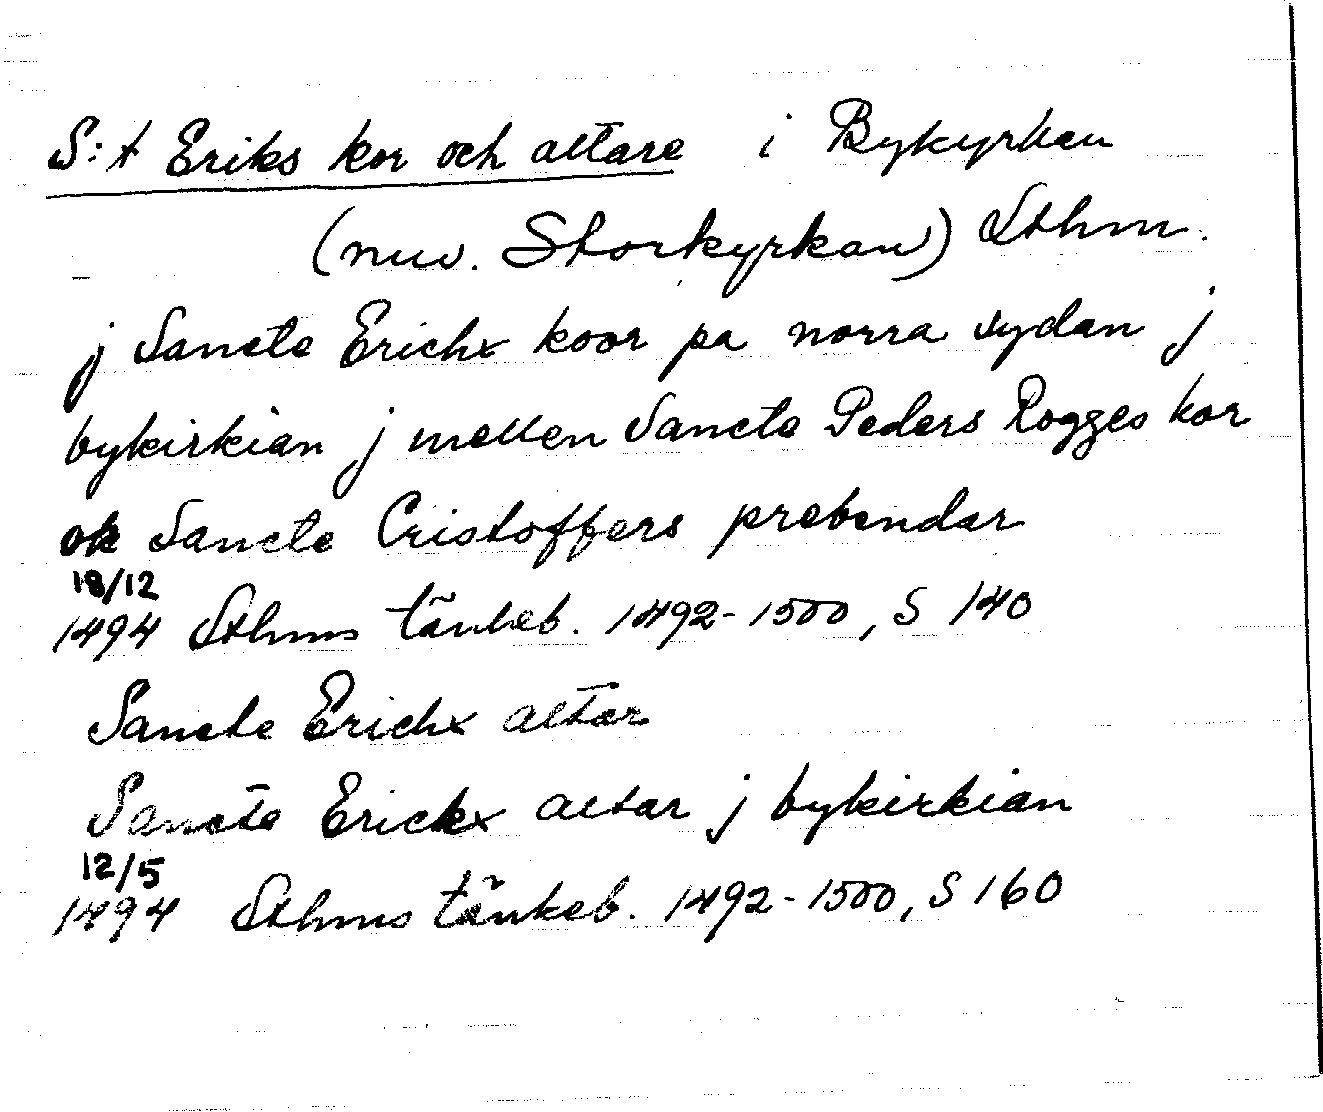 S:t Eriks kor och altare i Bykyrkan
(nuv. Storkyrkan) Sthm.
j Sancte Erichx koor pa norra sydan j
bykirkian j mellen Sancte Peders Rogges kor
ok Sancte Cristoffers prebendar
18/12
1494 Sthms tänkeb. 1492-1500, S 140
Sancte Erichx altar
Sancte Erickx altar j bykirkian
12/5
1494 Sthms tänkeb. 1492-1500, S 160